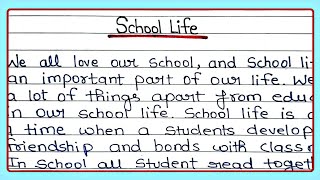 School Life
We all love our School, and School li
an important part of our life. We
a lot of things apart from educ
in our school life. School life is a
a time when a students develop
friendship and bonds with class
In School all student read toget